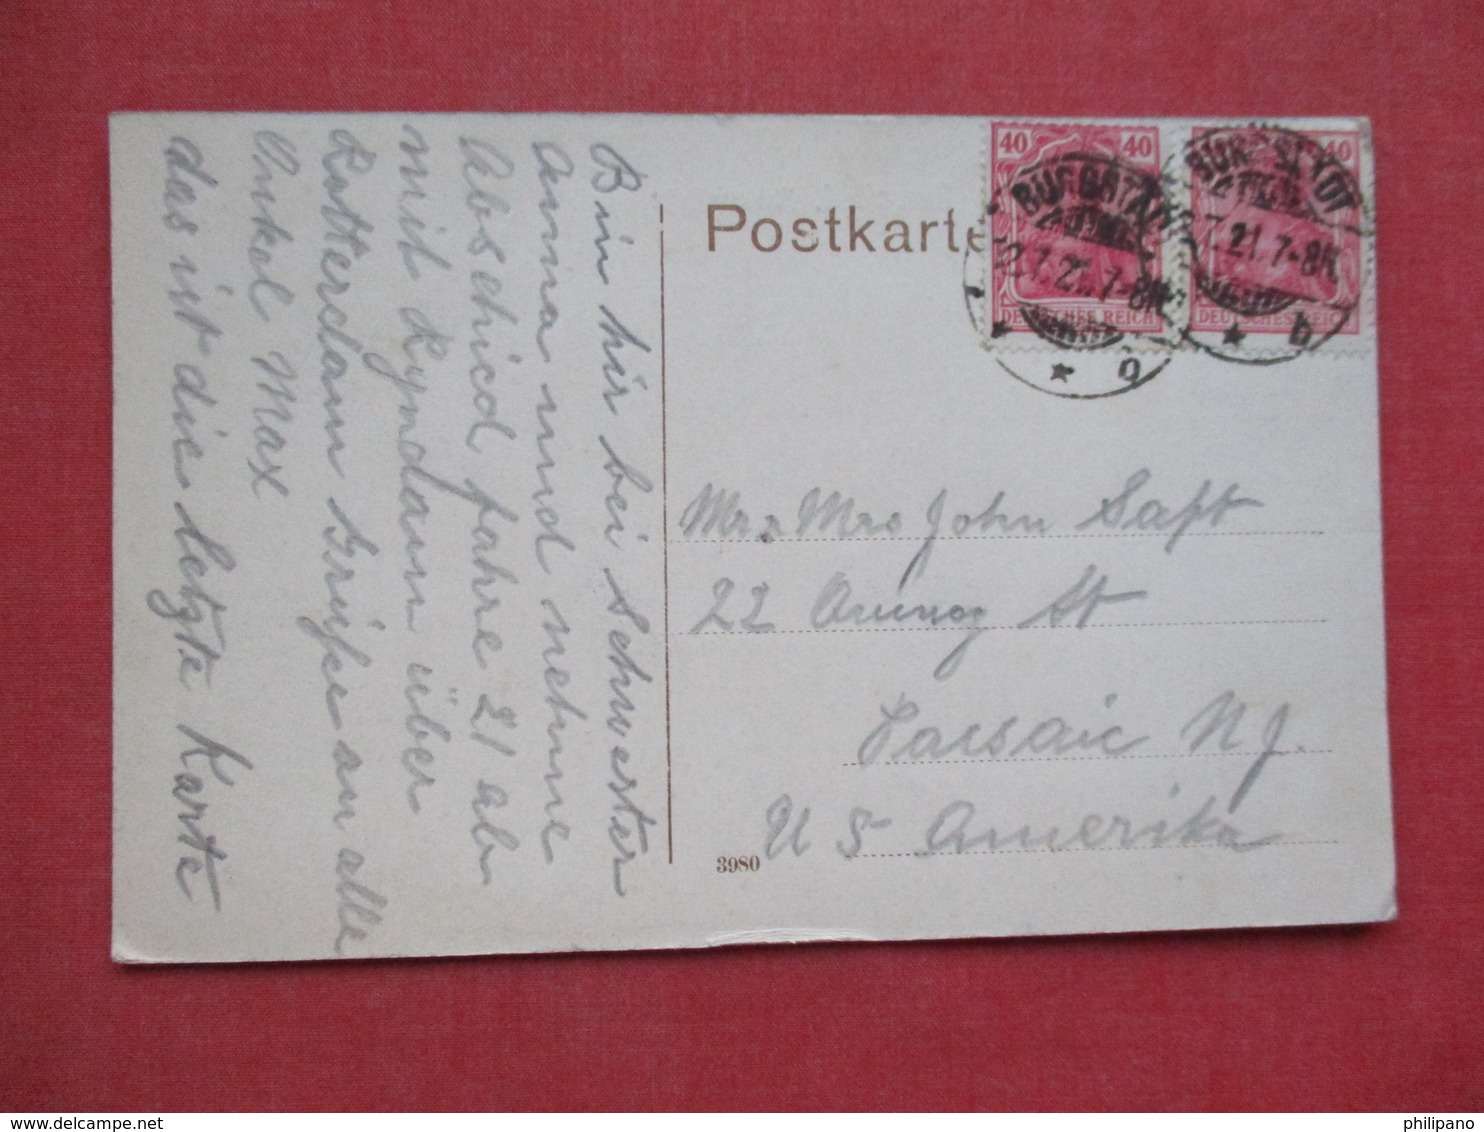 Bin hir bei Schwester
Anna und nehme
Abschied fahre 21 ab
mit Ryndam über
Rotterdam Grüße an alle
Onkel Max
das ist die letzte Karte
Postkarte
40 40
DEUTSCHES REICH
40
DEUTSCHES REICH
21.7-8N.
b
Mr & Mrs John Saft
22 St
Passaic N J.
U S Amerika
3980
philipano
www.delcampe.net